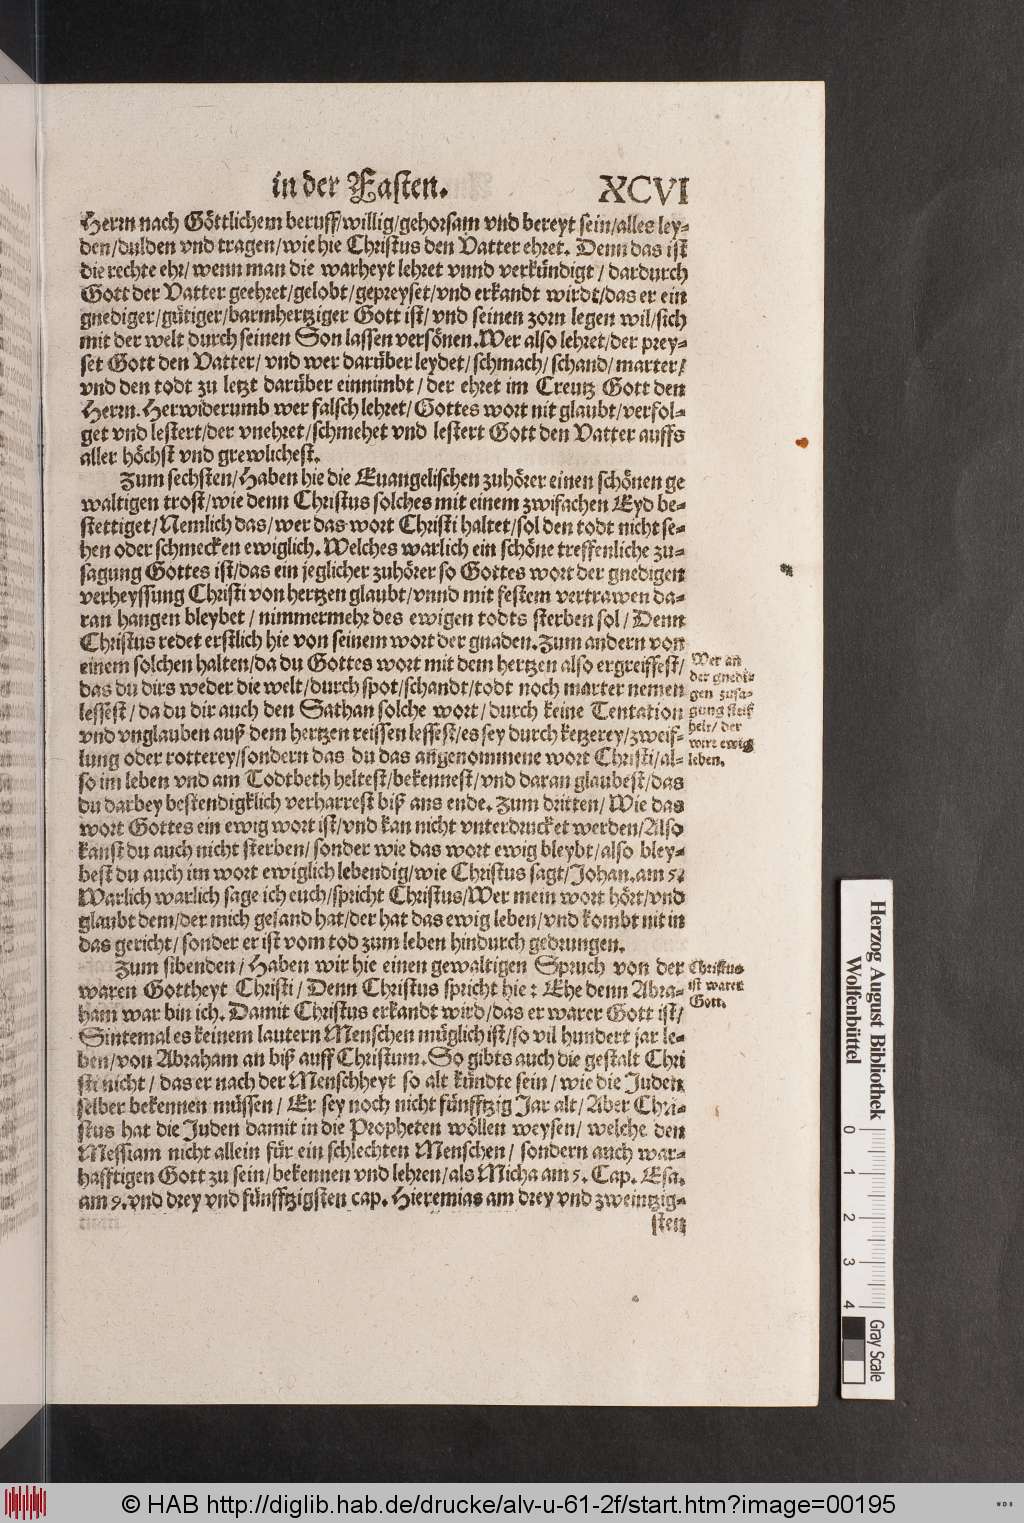 in der Fasten. XCVI
Herrn nach Göttlichem beruff/willig/gehorsam vnd bereyt sein/alles ley-
den/dulden vnd tragen/wie hie Christus den Vatter ehret. Denn das ist
die rechte ehr/wenn man die warheyt lehret vnnd verkündigt/dardurch
Gott der Vatter geehret/gelobt/gepreyset/vnd erkandt wirdt/das er ein
gnediger/gütiger/barmhertziger Gott ist/vnd seinen zorn legen wil/sich
mit der welt durch seinen Son lassen versönen. Wer also lehret/der prey-
set Gott den Vatter/vnd wer darüber leydet/schmach/schand/marter/
vnd den todt zu letzt darüber einnimbt/der ehret im Creutz Gott den
Herrn. Herwiderumb wer falsch lehret/Gottes wort nit glaubt/verfol-
get vnd lestert/der vnehret/schmehet vnd lestert Gott den Vatter auffs
aller höchst vnd grewlichest.
Zum sechsten/Haben hie die Euangelischen zuhörer einen schönen ge
waltigen trost/wie denn Christus solches mit einem zwifachen Eyd be-
stettiget/Nemlich das/wer das wort Christi haltet/sol den todt nicht se-
hen oder schmecken ewiglich. Welches warlich ein schöne treffenliche zu-
sagung Gottes ist/das ein jeglicher zuhörer so Gottes wort der gnedigen
verheyssung Christi von hertzen glaubt/vnnd mit festem vertrawen da-
ran hangen bleybet/nimmermehr des ewigen todts sterben sol/Denn
Christus redet erstlich hie von seinem wort der gnaden. Zum andern von
einem solchen halten/da du Gottes wort mit dem hertzen also ergreiffest/
das du dirs weder die welt/durch spot/schandt/todt noch marter nemen
lessest/da du dir auch den Sathan solche wort/durch keine Tentation
vnd vnglauben auß dem hertzen reissen lessest/es sey durch ketzerey/zweif-
lung oder rotterey/sondern das du das angenommene wort Christi/al-
so im leben vnd am Todtbeth heltest/bekennest/vnd daran glaubest/das
du darbey bestendigklich verharrest biß ans ende. Zum dritten/Wie das
wort Gottes ein ewig wort ist/vnd kan nicht vnterdrucket werden/Also
kanst du auch nicht sterben/sonder wie das wort ewig bleybt/also bley-
best du auch im wort ewiglich lebendig/wie Christus sagt/Johan. am 5.
Warlich warlich sage ich euch/spricht Christus/Wer mein wort hört/vnd
glaubt dem/der mich gesand hat/der hat das ewig leben/vnd kombt nit in
das gericht/sonder er ist vom tod zum leben hindurch gedrungen.
Wer an
der gnedi-
gen zusa-
gung steif
helt/der
wirt ewig
leben.
Zum sibenden/Haben wir hie einen gewaltigen Spruch von der
waren Gottheyt Christi/Denn Christus spricht hie: Ehe denn Abra-
ham war bin ich. Damit Christus erkandt wird/das er warer Gott ist/
Sintemal es keinem lautern Menschen müglich ist/so vil hundert jar le-
ben/von Abraham an biß auff Christum. So gibts auch die gestalt Chri
sti nicht/das er nach der Menschheyt so alt kündte sein/wie die Juden
selber bekennen müssen/Er sey noch nicht fünfftzig Jar alt/Aber Chri-
stus hat die Juden damit in die Propheten wöllen weysen/welche den
Messiam nicht allein für ein schlechten Menschen/sondern auch war-
hafftigen Gott zu sein/bekennen vnd lehren/als Micha am 5. Cap. Esa.
am 9. vnd drey vnd fünfftzigsten cap. Hieremias am drey vnd zweintzig-
sten
Christus
ist warer
Gott.
Herzog August Bibliothek
Wolfenbüttel
0 1 2 3 4
Gray Scale
© HAB http://diglib.hab.de/drucke/alv-u-61-2f/start.htm?image=00195